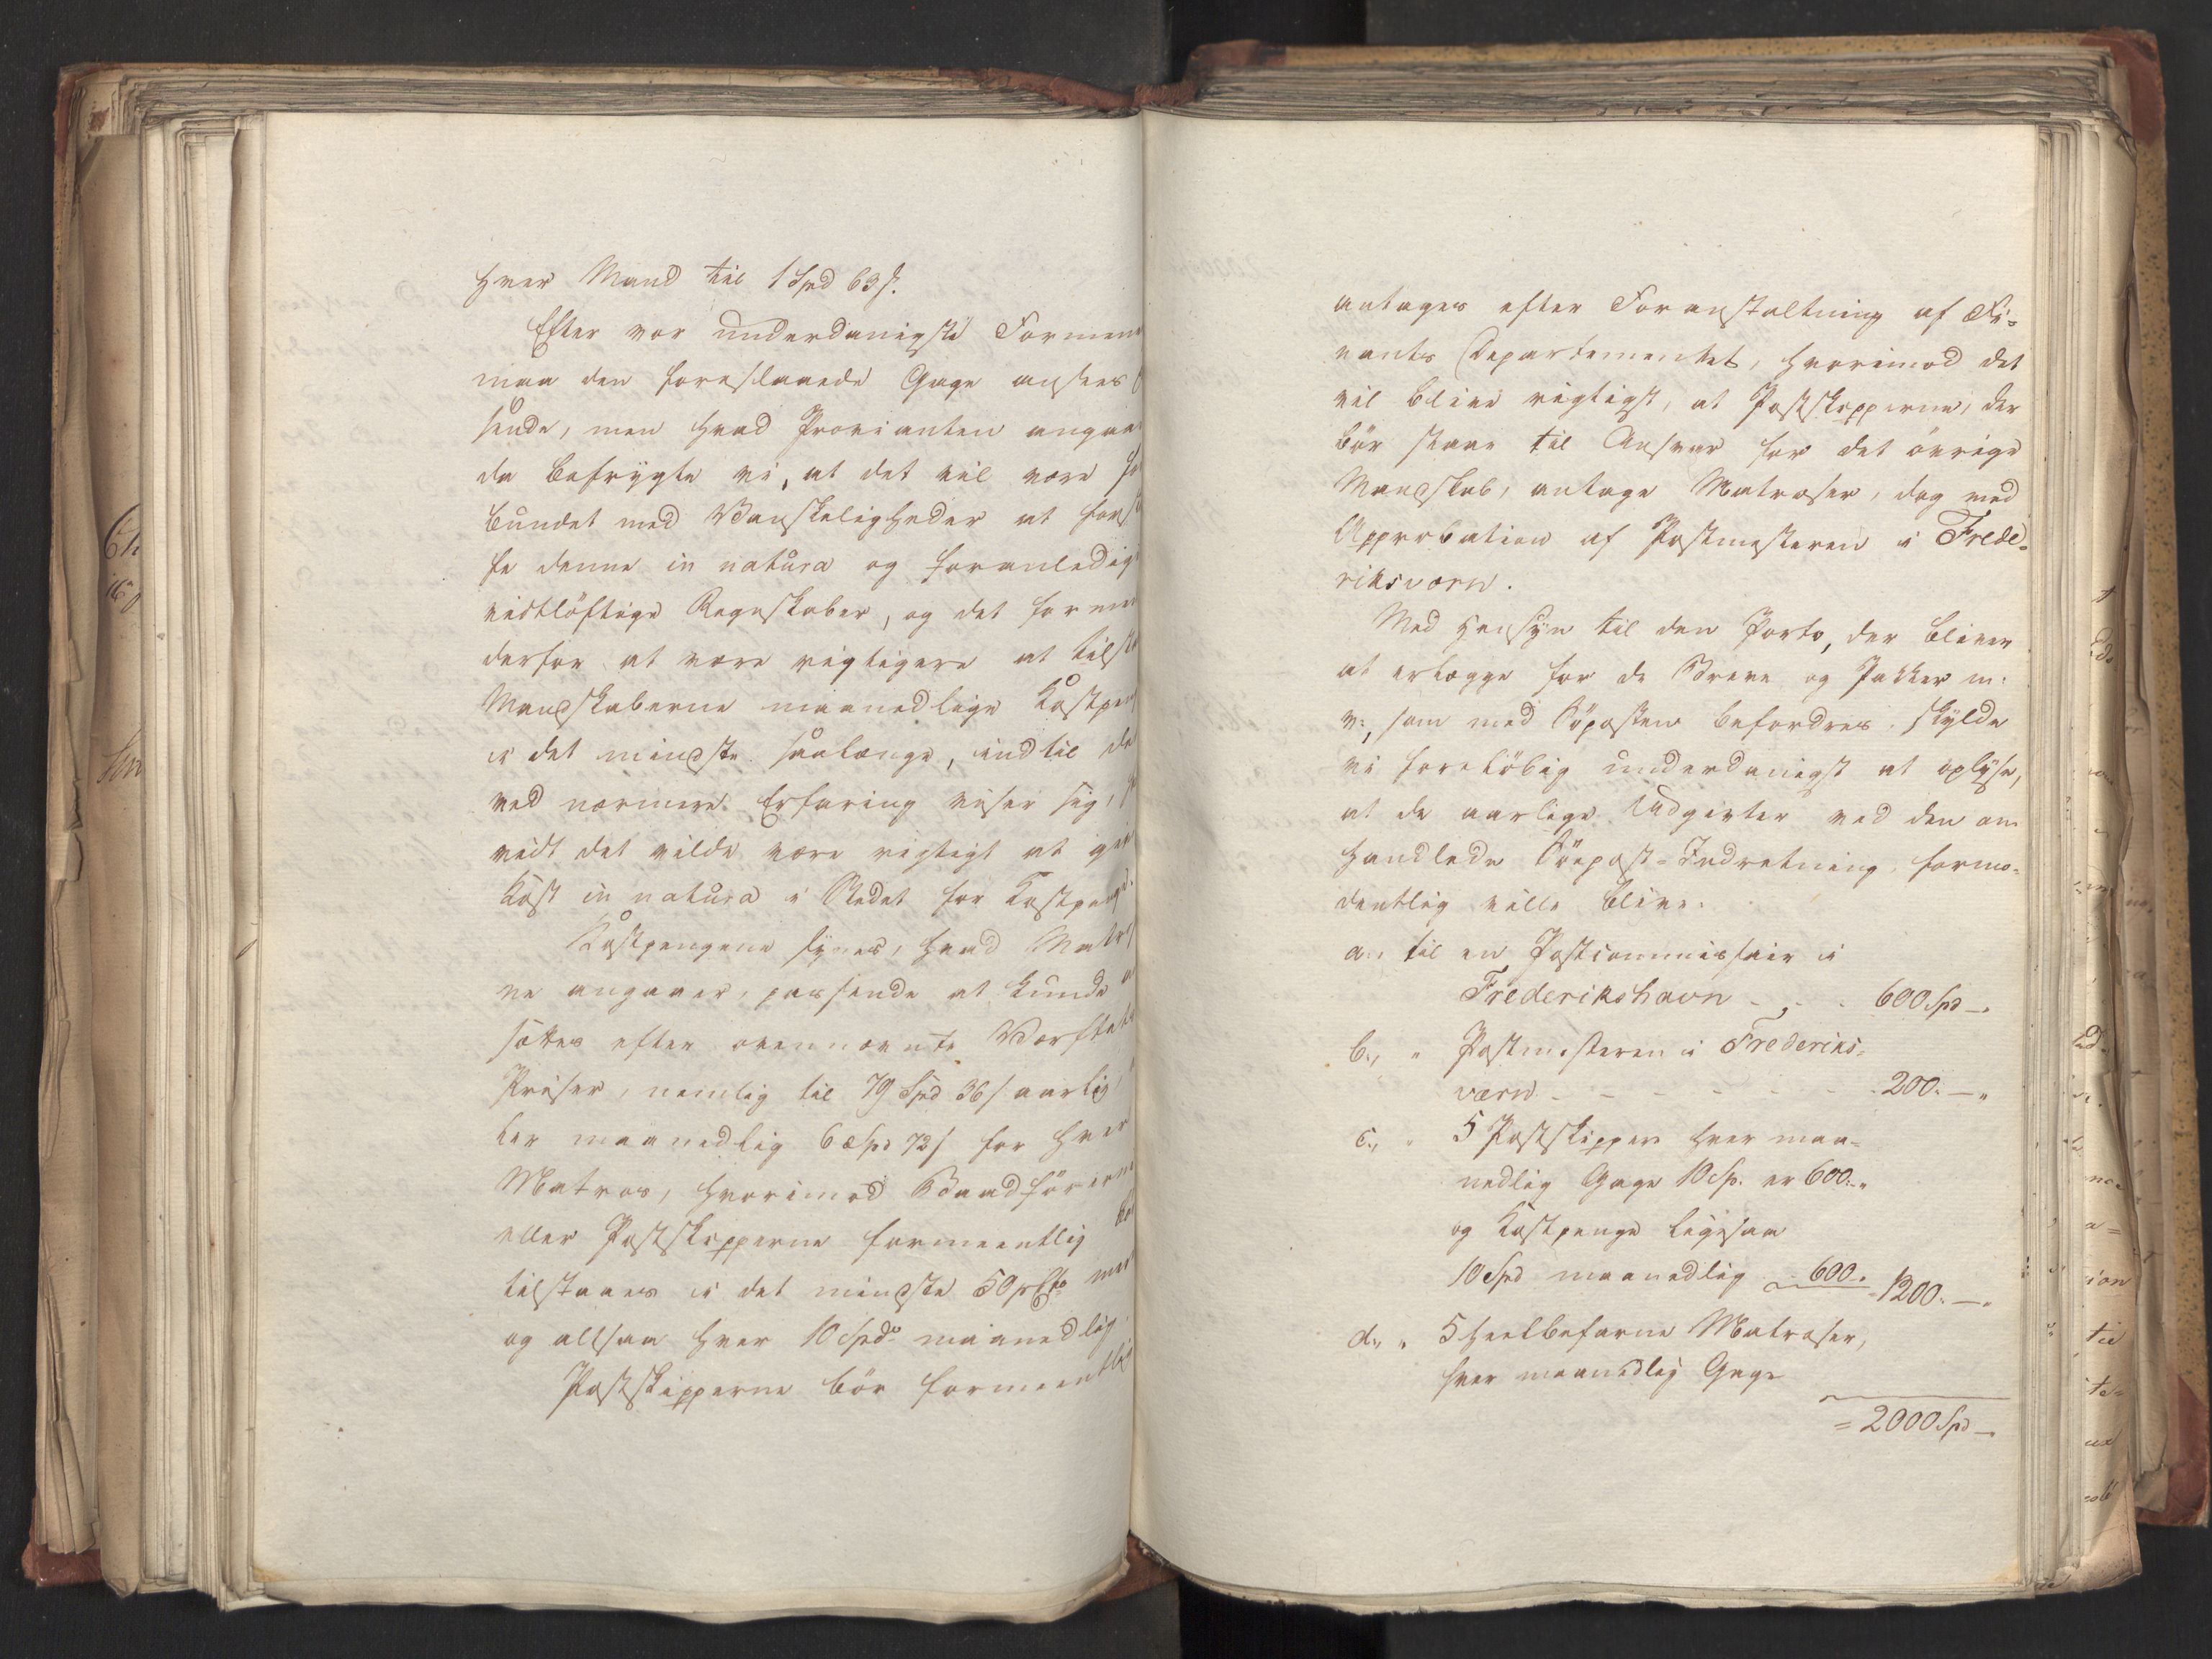 hver Mand til 1 Spd 63 s.
Efter vor underdanigste Formeen
maa den foreslaaede Gage ansees
sende, men hvad Provianten angaae
da befrygte vi, at det vil være for
bundet med Vanskeligheder at forst
te denne in natura og foranledige
vidtløftige Regnskaber, og det formee
derfor at være rigtigere at tilst
Mandskaberne maanedlige Kostpen
i det mindste saalænge, indtil det
ved nærmere Erfaring viser sig, h
vidt det vilde være rigtigt at giv
Kost in natura i Stedet for Kostpenge.
Kostpengene synes, hvad Matros
ne angaaer, passende at kunde a
sættes efter ovennævnte Værftets
Priser, nemlig til 79 Spd 36 s aarlig,
ler maanedlig 6 Spd 72 s for hver
Matros, hvorimod Baadførerne
eller Postskipperne formeentlig bør
tilstaaes i det mindste 50 pCto mee
og altsaa hver 10 Spd maanedlig.
Postskipperne bør formeentlig
antages efter Foranstaltning af Fi-
nants Departementet, hvorimod det
vil blive rigtigst, at Postskipperne, der
bör staae til Ansvar for det övrige
Mandskab, antage Matroser, dog med
Approbation af Postmesteren i Frede-
riksværn.
Med Hensyn til den Porto, der bliver
at erlægge for de Breve og Pakker m:
v:, som med Söposten befordres, skylde
vi foreløbig underdanigst at oplyse,
at de aarlige Udgivter ved den om
handlede Söepost-Indretning, formo-
dentlig ville blive:
a., til en Postcommissair i
Frederikshavn - - - 600 Spd -.
b., " Postmesteren i Frederiks-
værn - - - - - - 200. - "
c., " 5 Postskippere hver maa-
nedlig Gage 10 Sp. er 600.. "
og Kostpenge ligesaa
10 Spd maanedlig 600. 1200. - "
d., " 5 heelbefarne Matroser,
hver maanedlig Gage
= 2000 Spd -.